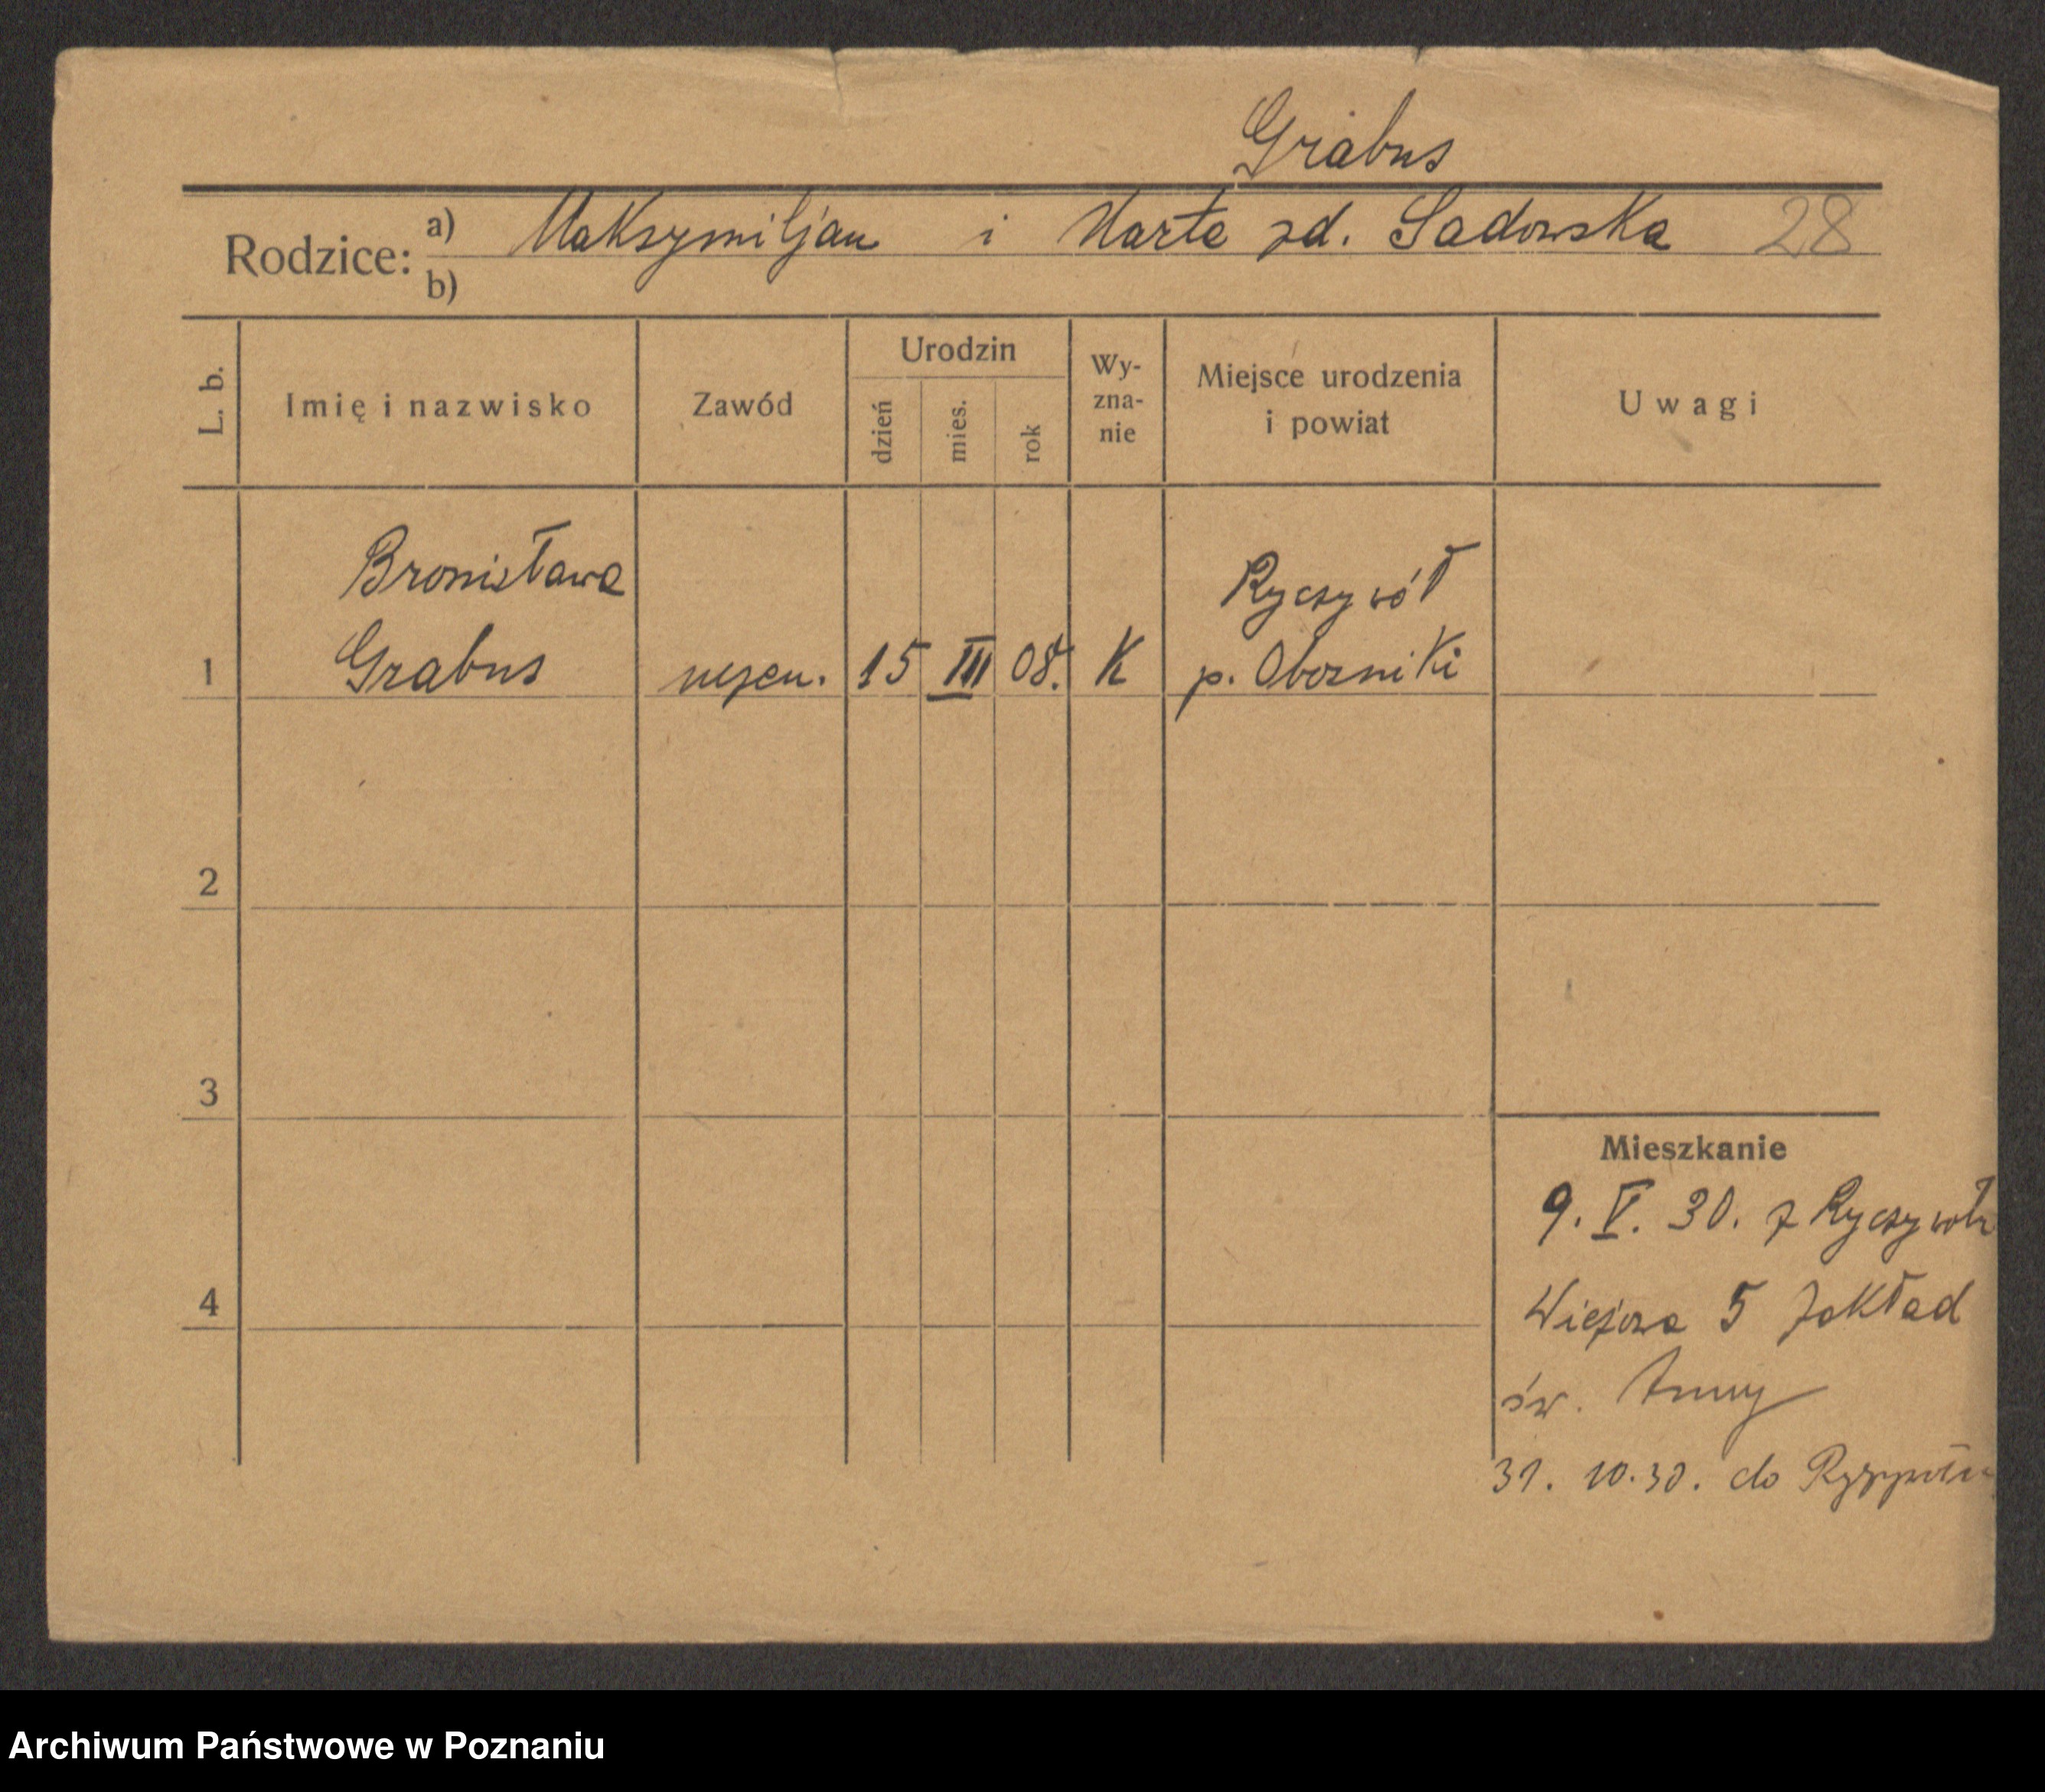 Grabus
Rodzice: a) Maksymiljan i Marta zd. Sadowska 28
b)
L. b.
Imię i nazwisko
Zawód
Urodzin
dzień
mies.
rok
Wy-
zna-
nie
Miejsce urodzenia
i powiat
Uwagi
Bronisława Ryczywół
1 Grabus uczen. 15 III 08. K p. Oborniki
2
3
Mieszkanie
9. V. 30. z Ryczywołu
4
Wiejska 5 Zakład
św. Anny
31. 10. 30. do Ryczywołu
Archiwum Państwowe w Poznaniu